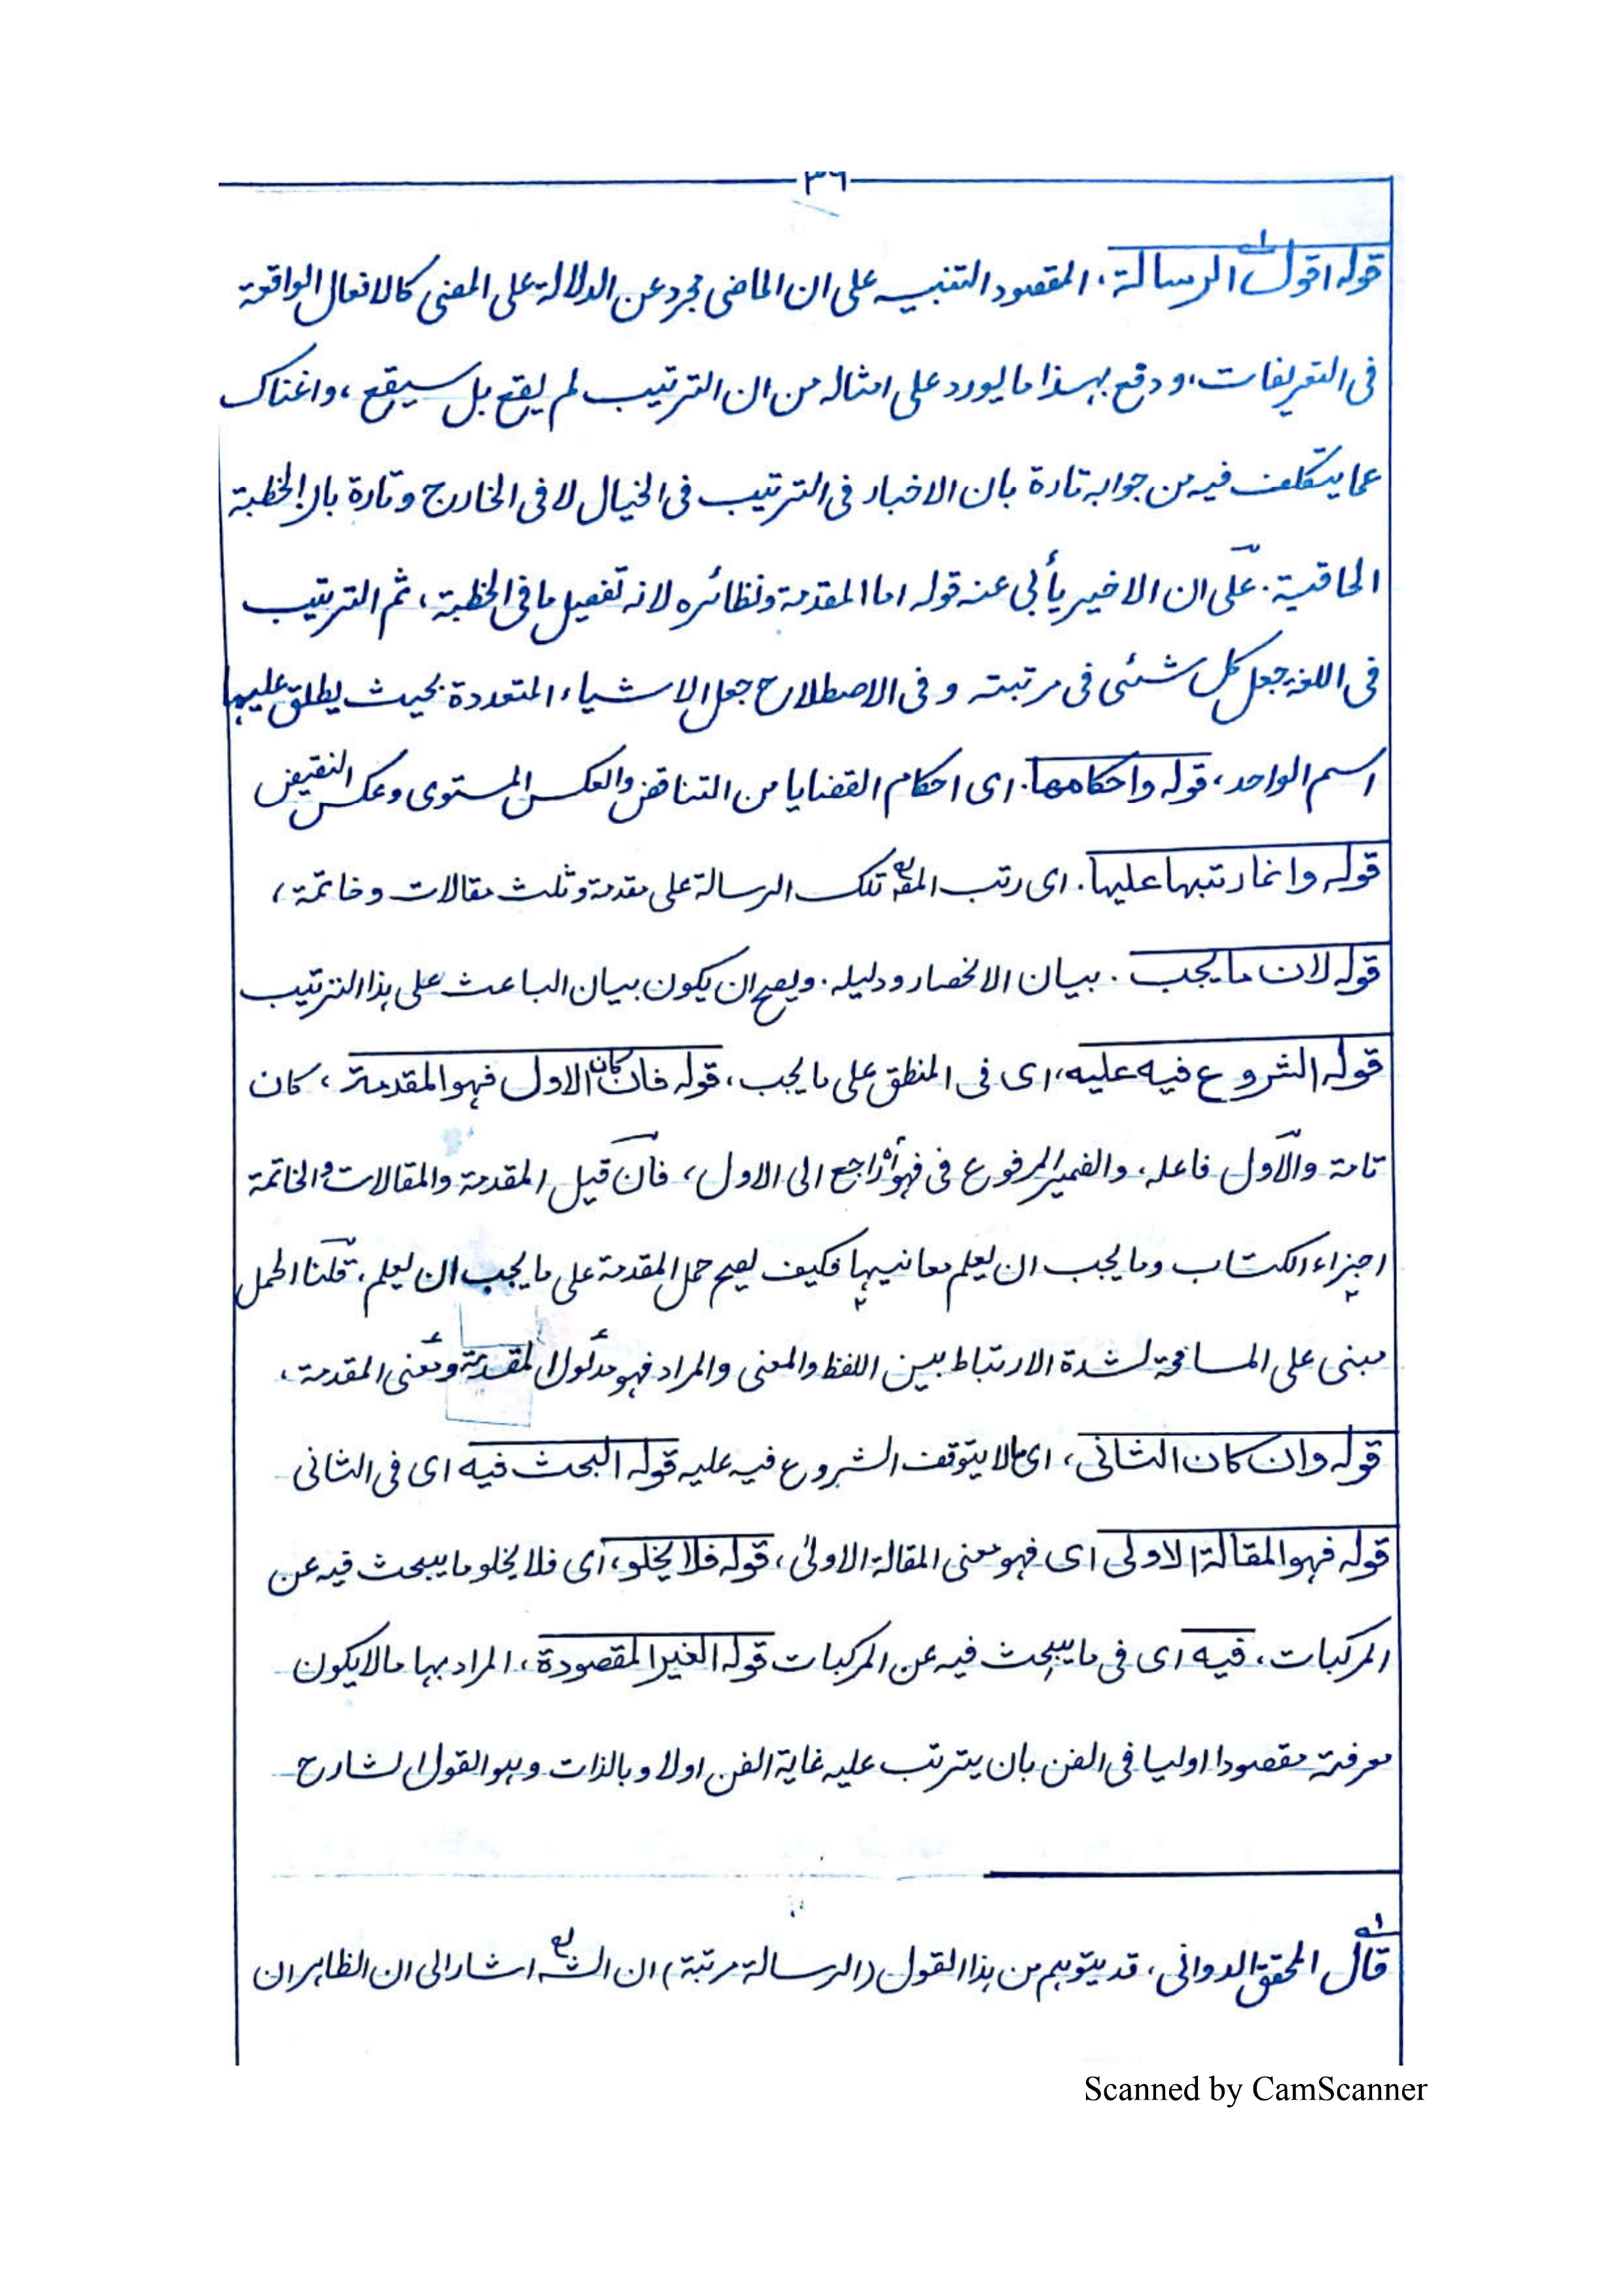 ٣٦
قوله اقول الرسالة، المقصود التنبيه على ان الماضى مجرد عن الدلالة على المضى كالافعال الواقعة
فى التعريفات، ودفع بهذا ما يورد على امثاله من ان الترتيب لم يقع بل سيقع، واغناك
عما يتكلف فيه من جوابه تارة بان الاخبار فى الترتيب فى الخيال لا فى الخارج وتارة بان الخطبة
الحاقية. على ان الاخير يأبى عنه قوله اما المقدمة ونظائره لانه تفصيل ما فى الخطبة، ثم الترتيب
فى اللغة جعل كل شئى فى مرتبته وفى الاصطلاح جعل الاشياء المتعددة بحيث يطلق عليها
اسم الواحد، قوله واحكامها. اى احكام القضايا من التناقض والعكس المستوى وعكس النقيض
قوله وانما رتبها عليها. اى رتب المصـ تلك الرسالة على مقدمة وثلث مقالات وخاتمة،
قوله لان ما يجب. بيان الانحصار ودليله. ويصح ان يكون بيان الباعث على هذا الترتيب
قوله الشروع فيه عليه، اى فى المنطق على ما يجب، قوله فان كان الاول فهو المقدمة، كان
تامة والاول فاعله، والضمير المرفوع فى فهو راجع الى الاول، فان قيل المقدمة والمقالات والخاتمة
اجزاء الكتاب وما يجب ان يعلم معانيها فكيف يصح حمل المقدمة على ما يجب ان يعلم، قلنا الحمل
مبنى على المسامحة لشدة الارتباط بين اللفظ والمعنى والمراد فهو مدلول المقدمة ومعنى المقدمة،
قوله وان كان الثانى، اى مالا يتوقف الشروع فيه عليه قوله البحث فيه اى فى الثانى
قوله فهو المقالة الاولى اى فهو معنى المقالة الاولى، قوله فلا يخلو، اى فلا يخلو ما يبحث فيه عن
المركبات، فيه اى فى ما يبحث فيه عن المركبات قوله الغير المقصودة، المراد بها مالا يكون
معرفته مقصودا اوليا فى الفن بان يترتب عليه غاية الفن اولا وبالذات وهو القول الشارح
قال المحقق الدوانى، قد يتوهم من هذا القول (الرسالة مرتبة) ان الشـ اشار الى ان الظاهر ان
Scanned by CamScanner